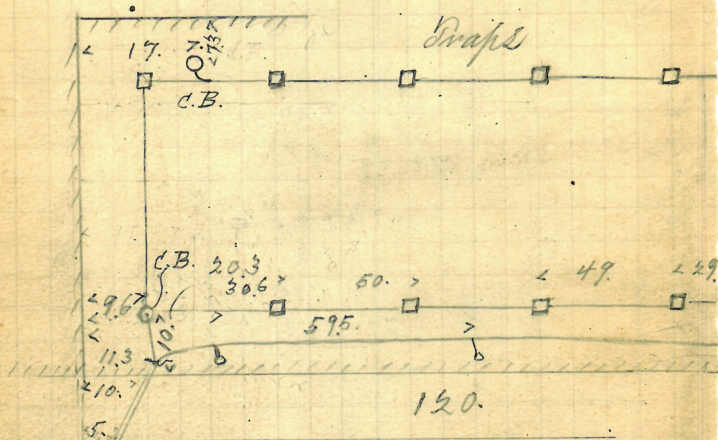 17. 7.3 Traps
C.B.
C.B. 20.3
30.6 50. 49. 29
9.6
10. 595
11.3 5
10. 120.
5.